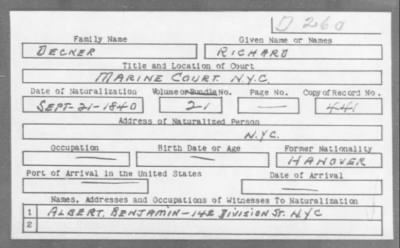 D 260
Family Name Given Name or Names
DECKER RICHARD
Title and Location of Court
MARINE COURT. N.Y.C.
Date of Naturalization Volume or Bundle No. Page No. Copy of Record No.
SEPT-21-1840 21 — 441
Address of Naturalized Person
N.Y.C.
Occupation Birth Date or Age Former Nationality
— — HANOVER
Port of Arrival in the United States Date of Arrival
— —
Names, Addresses and Occupations of Witnesses To Naturalization
1 ALBERT. BENJAMIN-142 DIVISION ST. NYC
2